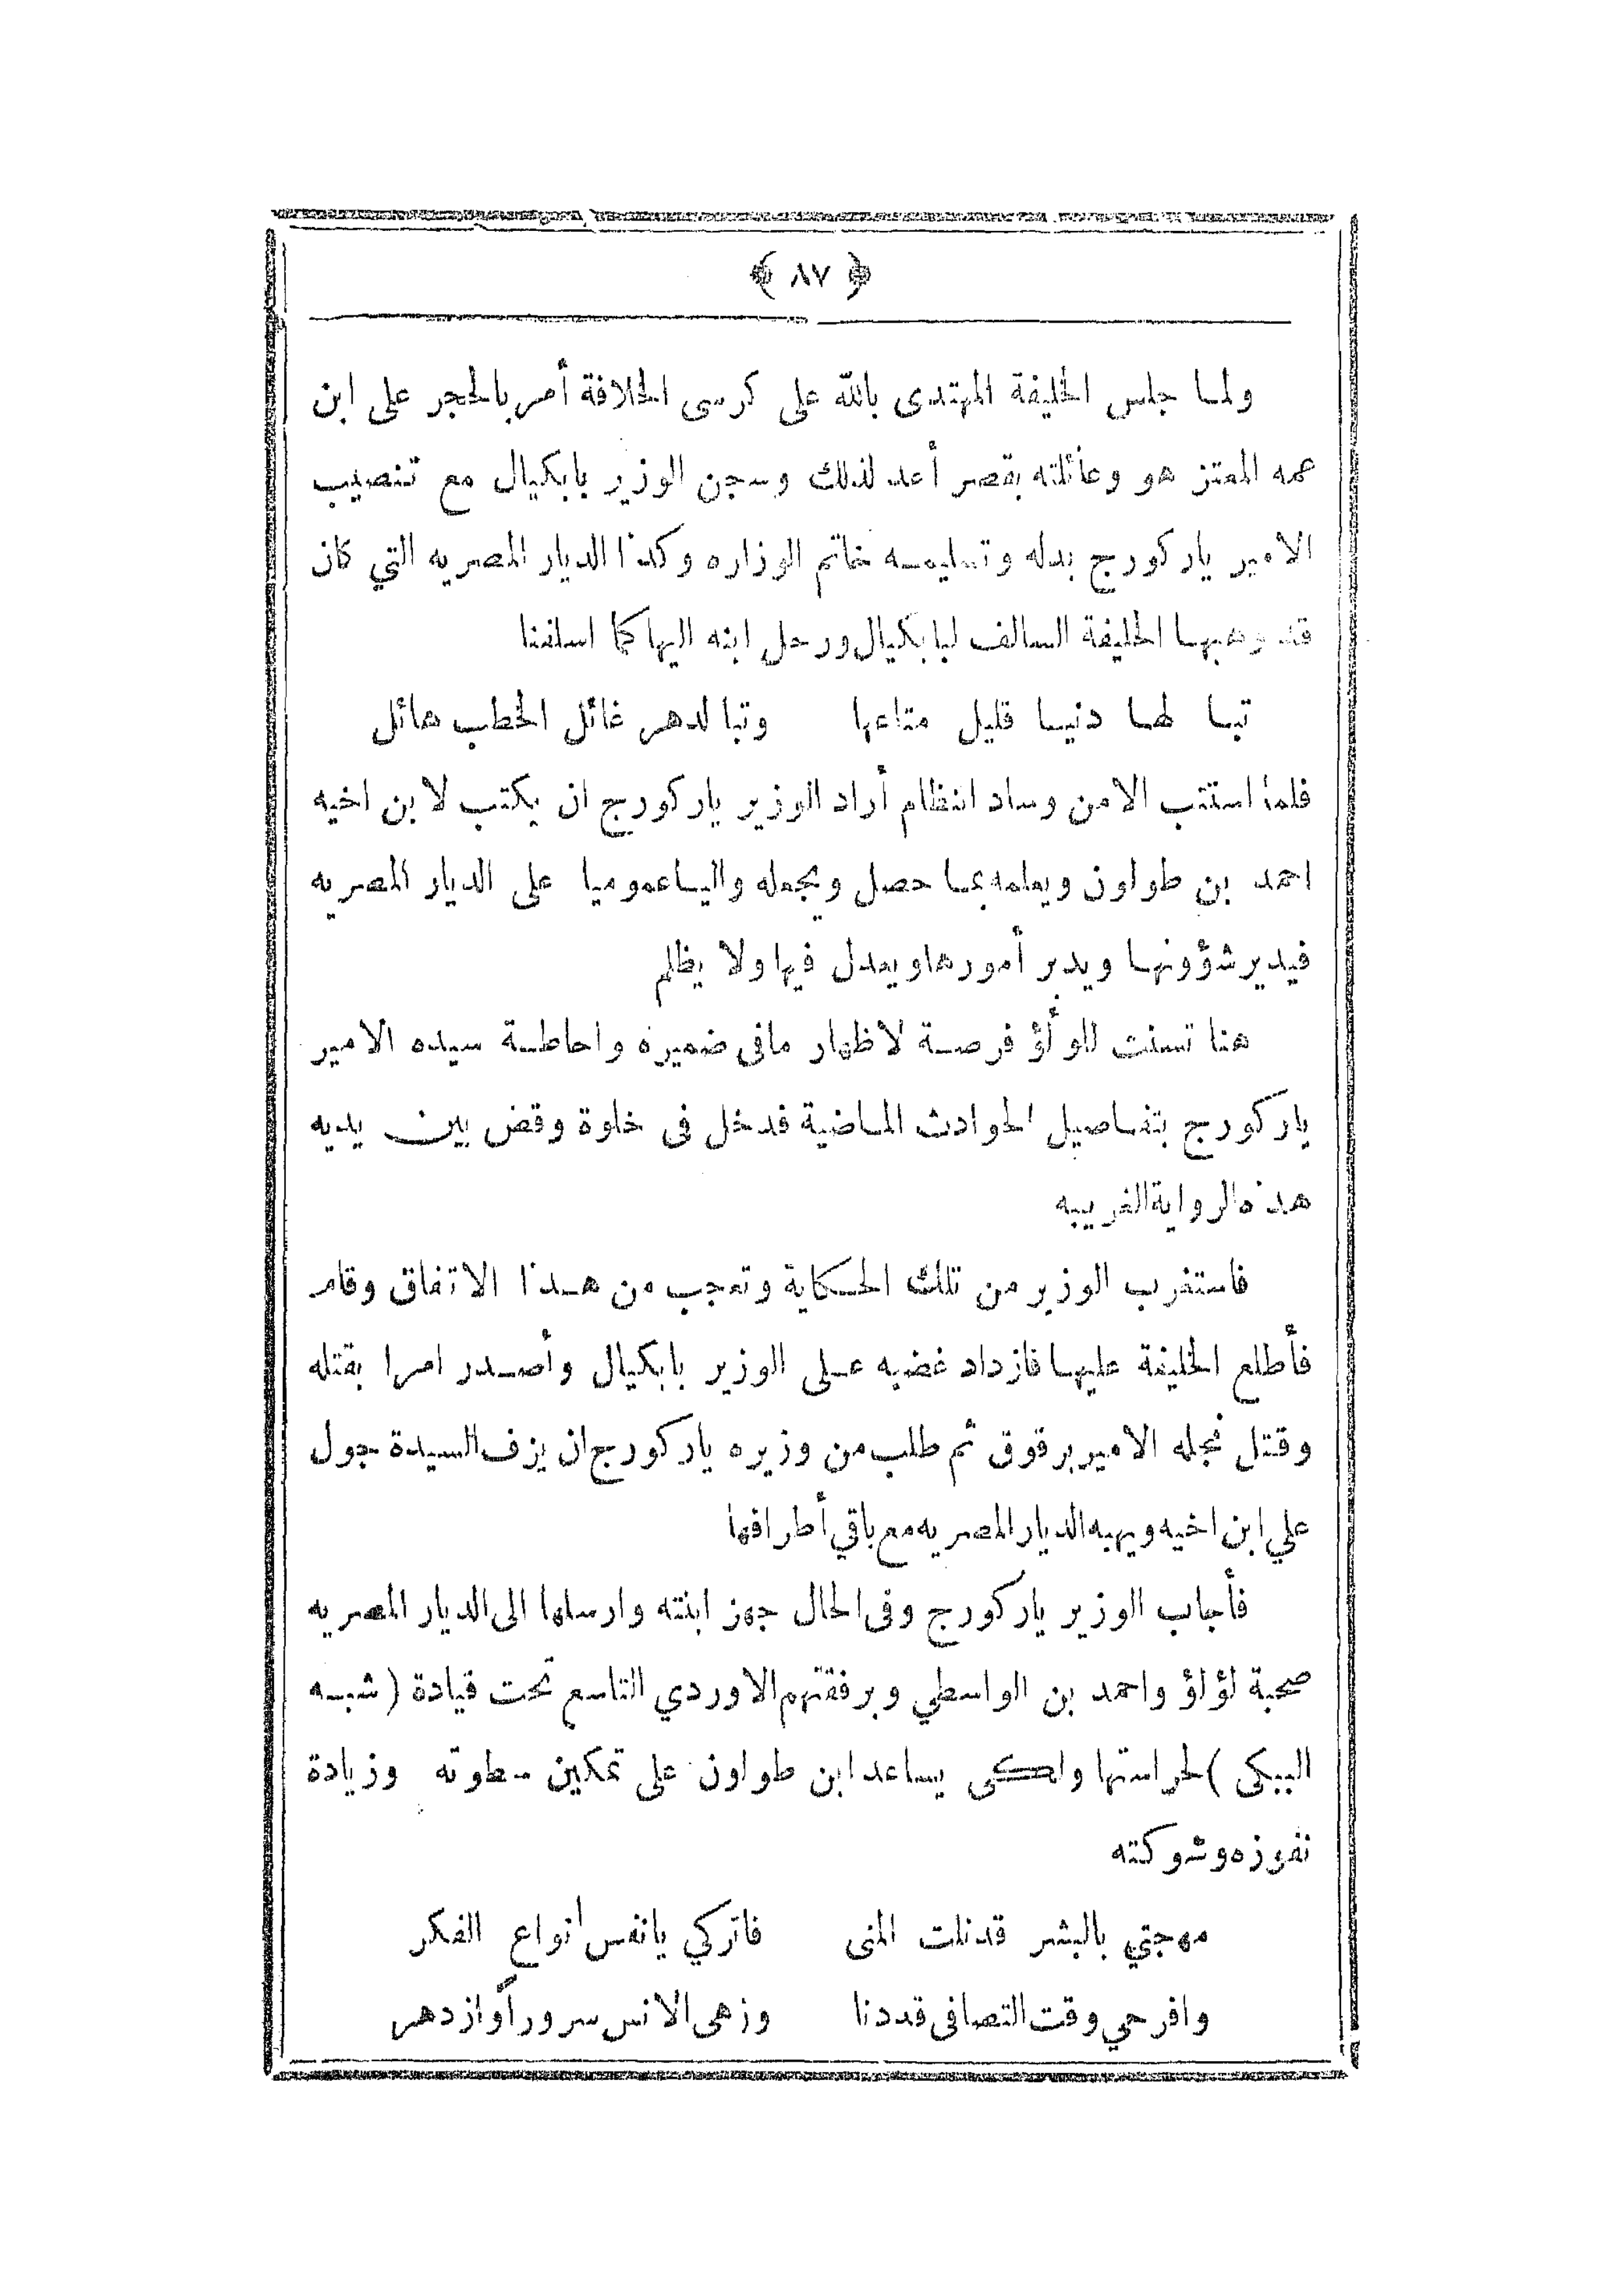 ﴿ ٨٧ ﴾
ولما جلس الخليفة المهتدى بالله على كرسى الخلافة أمر بالحجر على ابن
عمه المعتز هو وعائلته بقصر أعد لذلك وسجن الوزير بابكيال مع تنصيب
الامير ياركورج بدله وتسليمه خاتم الوزاره وكذا الديار المصريه التي كان
قد وهبها الخليفة السالف لبابكيال ورحل ابنه اليها كما اسلفنا
تبا لها دنيا قليل متاعها وتبا لدهر غائل الخطب هائل
فلما استتب الامن وساد انتظام أراد الوزير ياركورج ان يكتب لابن اخيه
احمد بن طولون ويعلمه بما حصل ويجعله واليا عموميا على الديار المصريه
فيدير شؤونها ويدبر أمورها ويعدل فيها ولا يظلم
هنا تسنت للولؤ فرصة لاظهار مافى ضميره واحاطة سيده الامير
ياركورج بتفاصيل الحوادث الماضية فدخل فى خلوة وقض بين يديه
هذه الرواية الغريبه
فاستغرب الوزير من تلك الحكاية وتعجب من هذا الاتفاق وقام
فأطلع الخليفة عليها فازداد غضبه على الوزير بابكيال وأصدر امرا بقتله
وقتل نجله الامير برقوق ثم طلب من وزيره ياركورج ان يزف السيدة جول
علي ابن اخيه ويهبه الديار المصريه مع باقي أطرافها
فأجاب الوزير ياركورج وفى الحال جهز ابنته وارسلها الى الديار المصريه
صحبة لؤلؤ واحمد بن الواسطي وبرفقتهم الاوردي التاسع تحت قيادة (شبه
الببكى) لحراستها ولكى يساعد ابن طولون على تمكين سطوته وزيادة
نفوزه وشوكته
مهجتي بالبشر قد نلت المنى فاتركي يانفس انواع الفكر
وافرحي وقت التصافى قد دنا وزهى الانس سروراً وازدهر